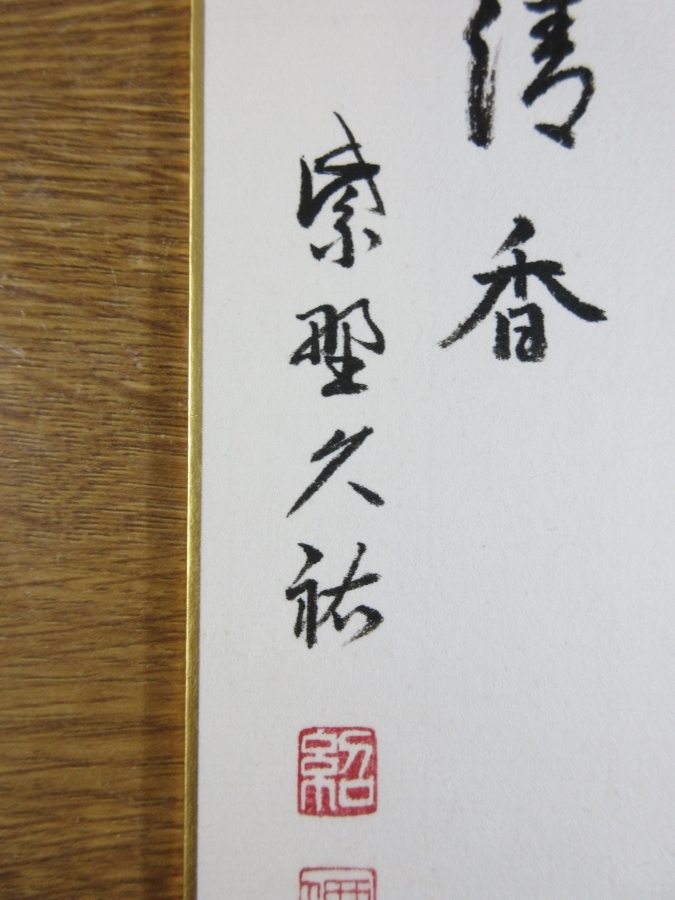 清香
紫野久祐
紹